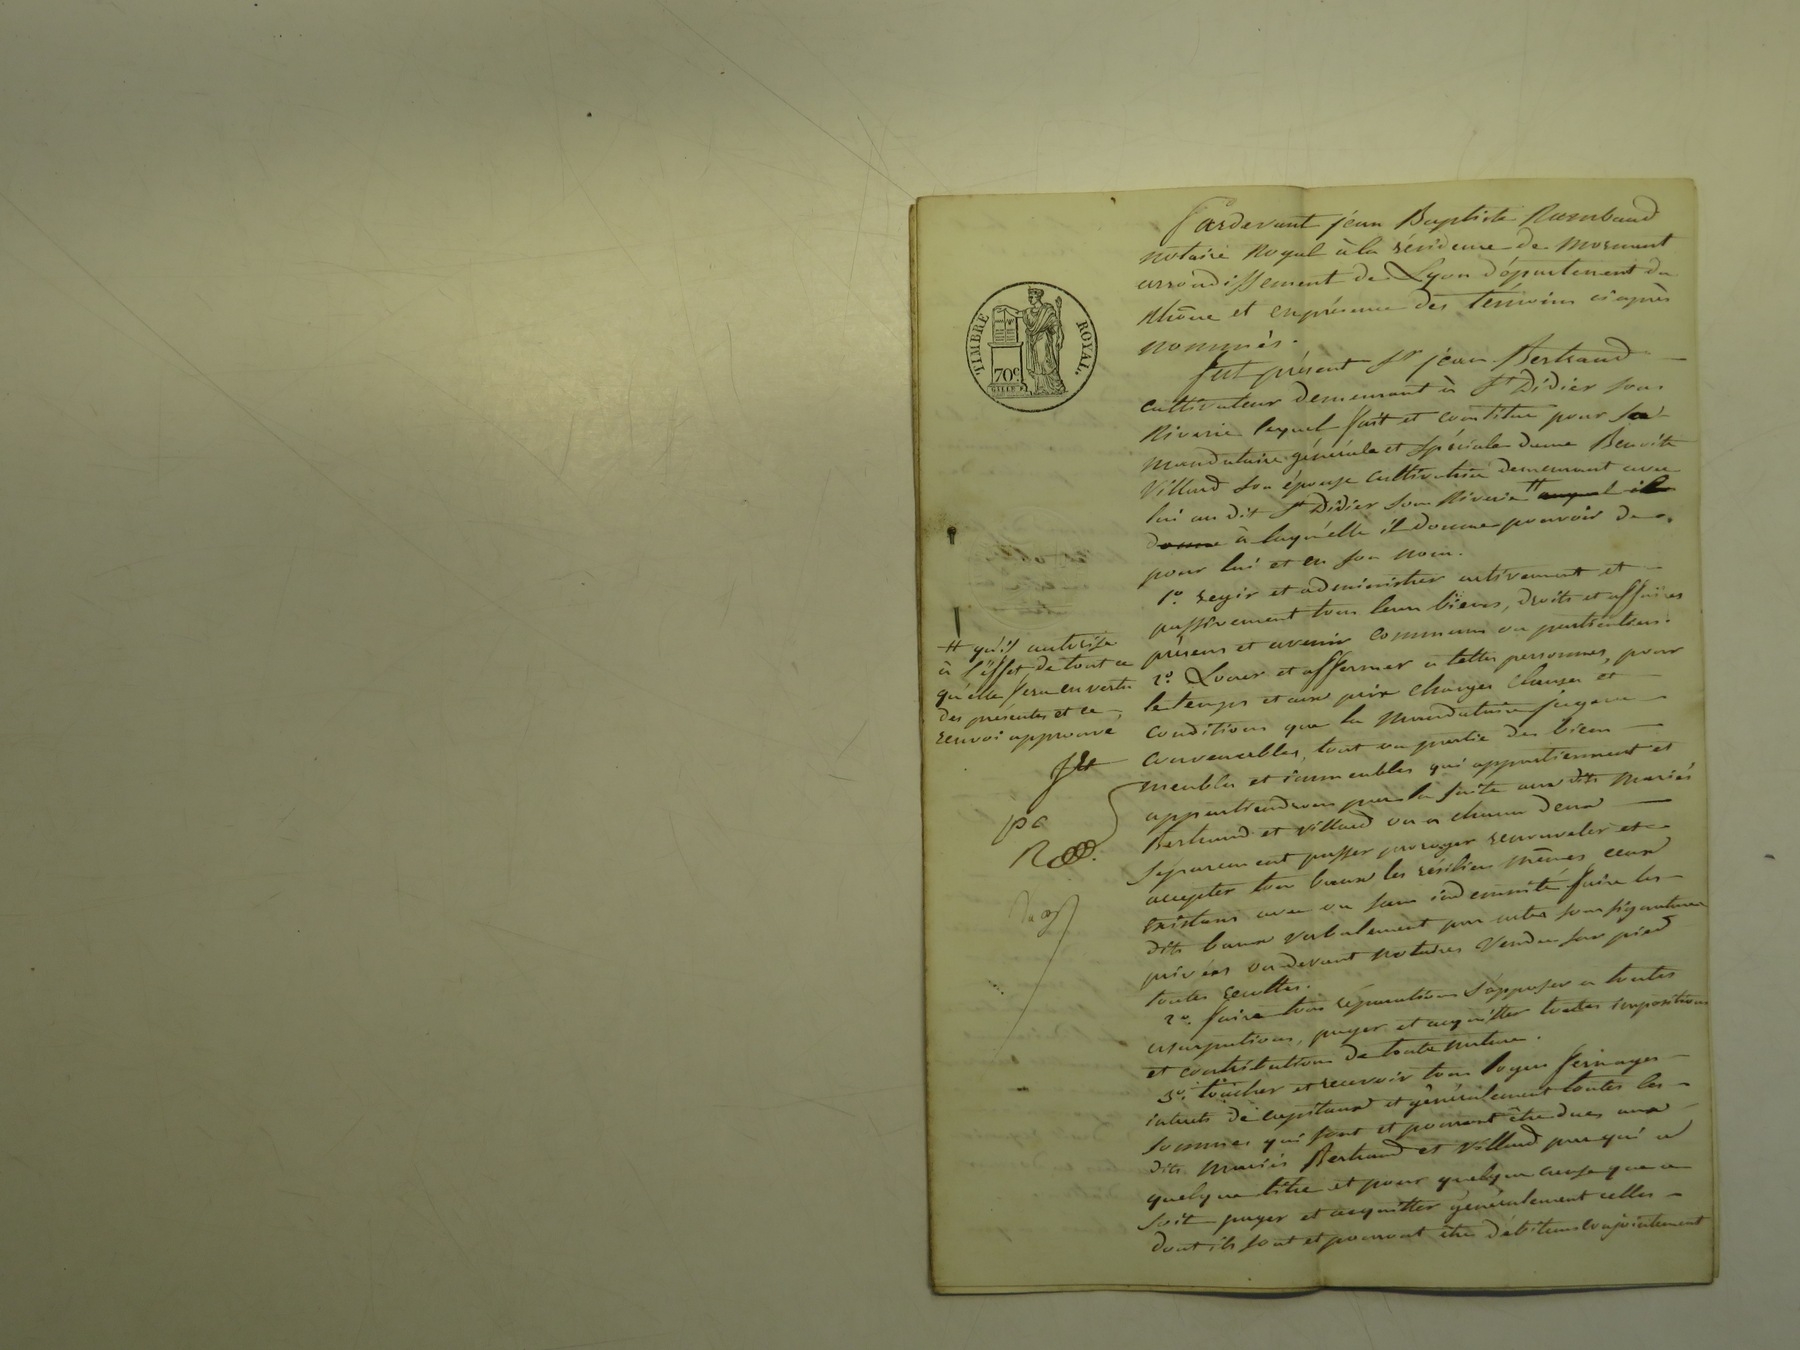 TIMBRE ROYAL.
70c
Pardevant jean Baptiste Rambaud
notaire Royal à la résidence de Mornant
arrondissement de Lyon département du
Rhône et en présence des témoins ci après
nommés.
fut présent Sr jean Bertrand
cultivateur demeurant à St Didier sous
Riverie lequel fait et constitue pour sa
mandataire générale et spéciale dame Benoite
Villard son épouse cultivatrice demeurant avec
lui au dit St Didier sous Riverie # auquel il
donne à laquelle il donne pouvoir de
pour lui et en son nom.
1o. regir et administrer activement et
passivement tous leurs biens, droits et affaires
présens et avenir communs ou particuliers.
# qu'il autorise
à l'effet de tout ce
qu'elle fera en vertu
des présentes et ce
renvoi approuvé
2o. Louer et affermer a telles personnes, pour
le temps et aux prix charges clauses et
conditions que la Mandataire jugera
convenables, tout ou partie des biens
meubles et immeubles qui appartiennent et
appartiendrons par la suite aux dits mariés
Bertrand et Villard ou a chacun deux
séparement passer proroger renouveler et
accepter tous baux les résilier mêmes ceux
existans avec ou sans indemnité faire les
dits baux verbalement par actes sous signatures
privées ou devant notaires Vendre sur pied
toutes recoltes.
2o. faire tous réparations s'opposer a toutes
usurpations, payer et acquitter toutes impositions
et contributions de toute nature.
3o. toucher et recevoir tous loyers fermages
interets de capitaux et généralement toutes les
sommes qui sont et pourront être dues aux
dits mariés Bertrand et Villard par qui a
quelque titre et pour quelque cause que ce
soit payer et acquitter généralement celles
dont ils sont et pourront être débiteurs conjointement